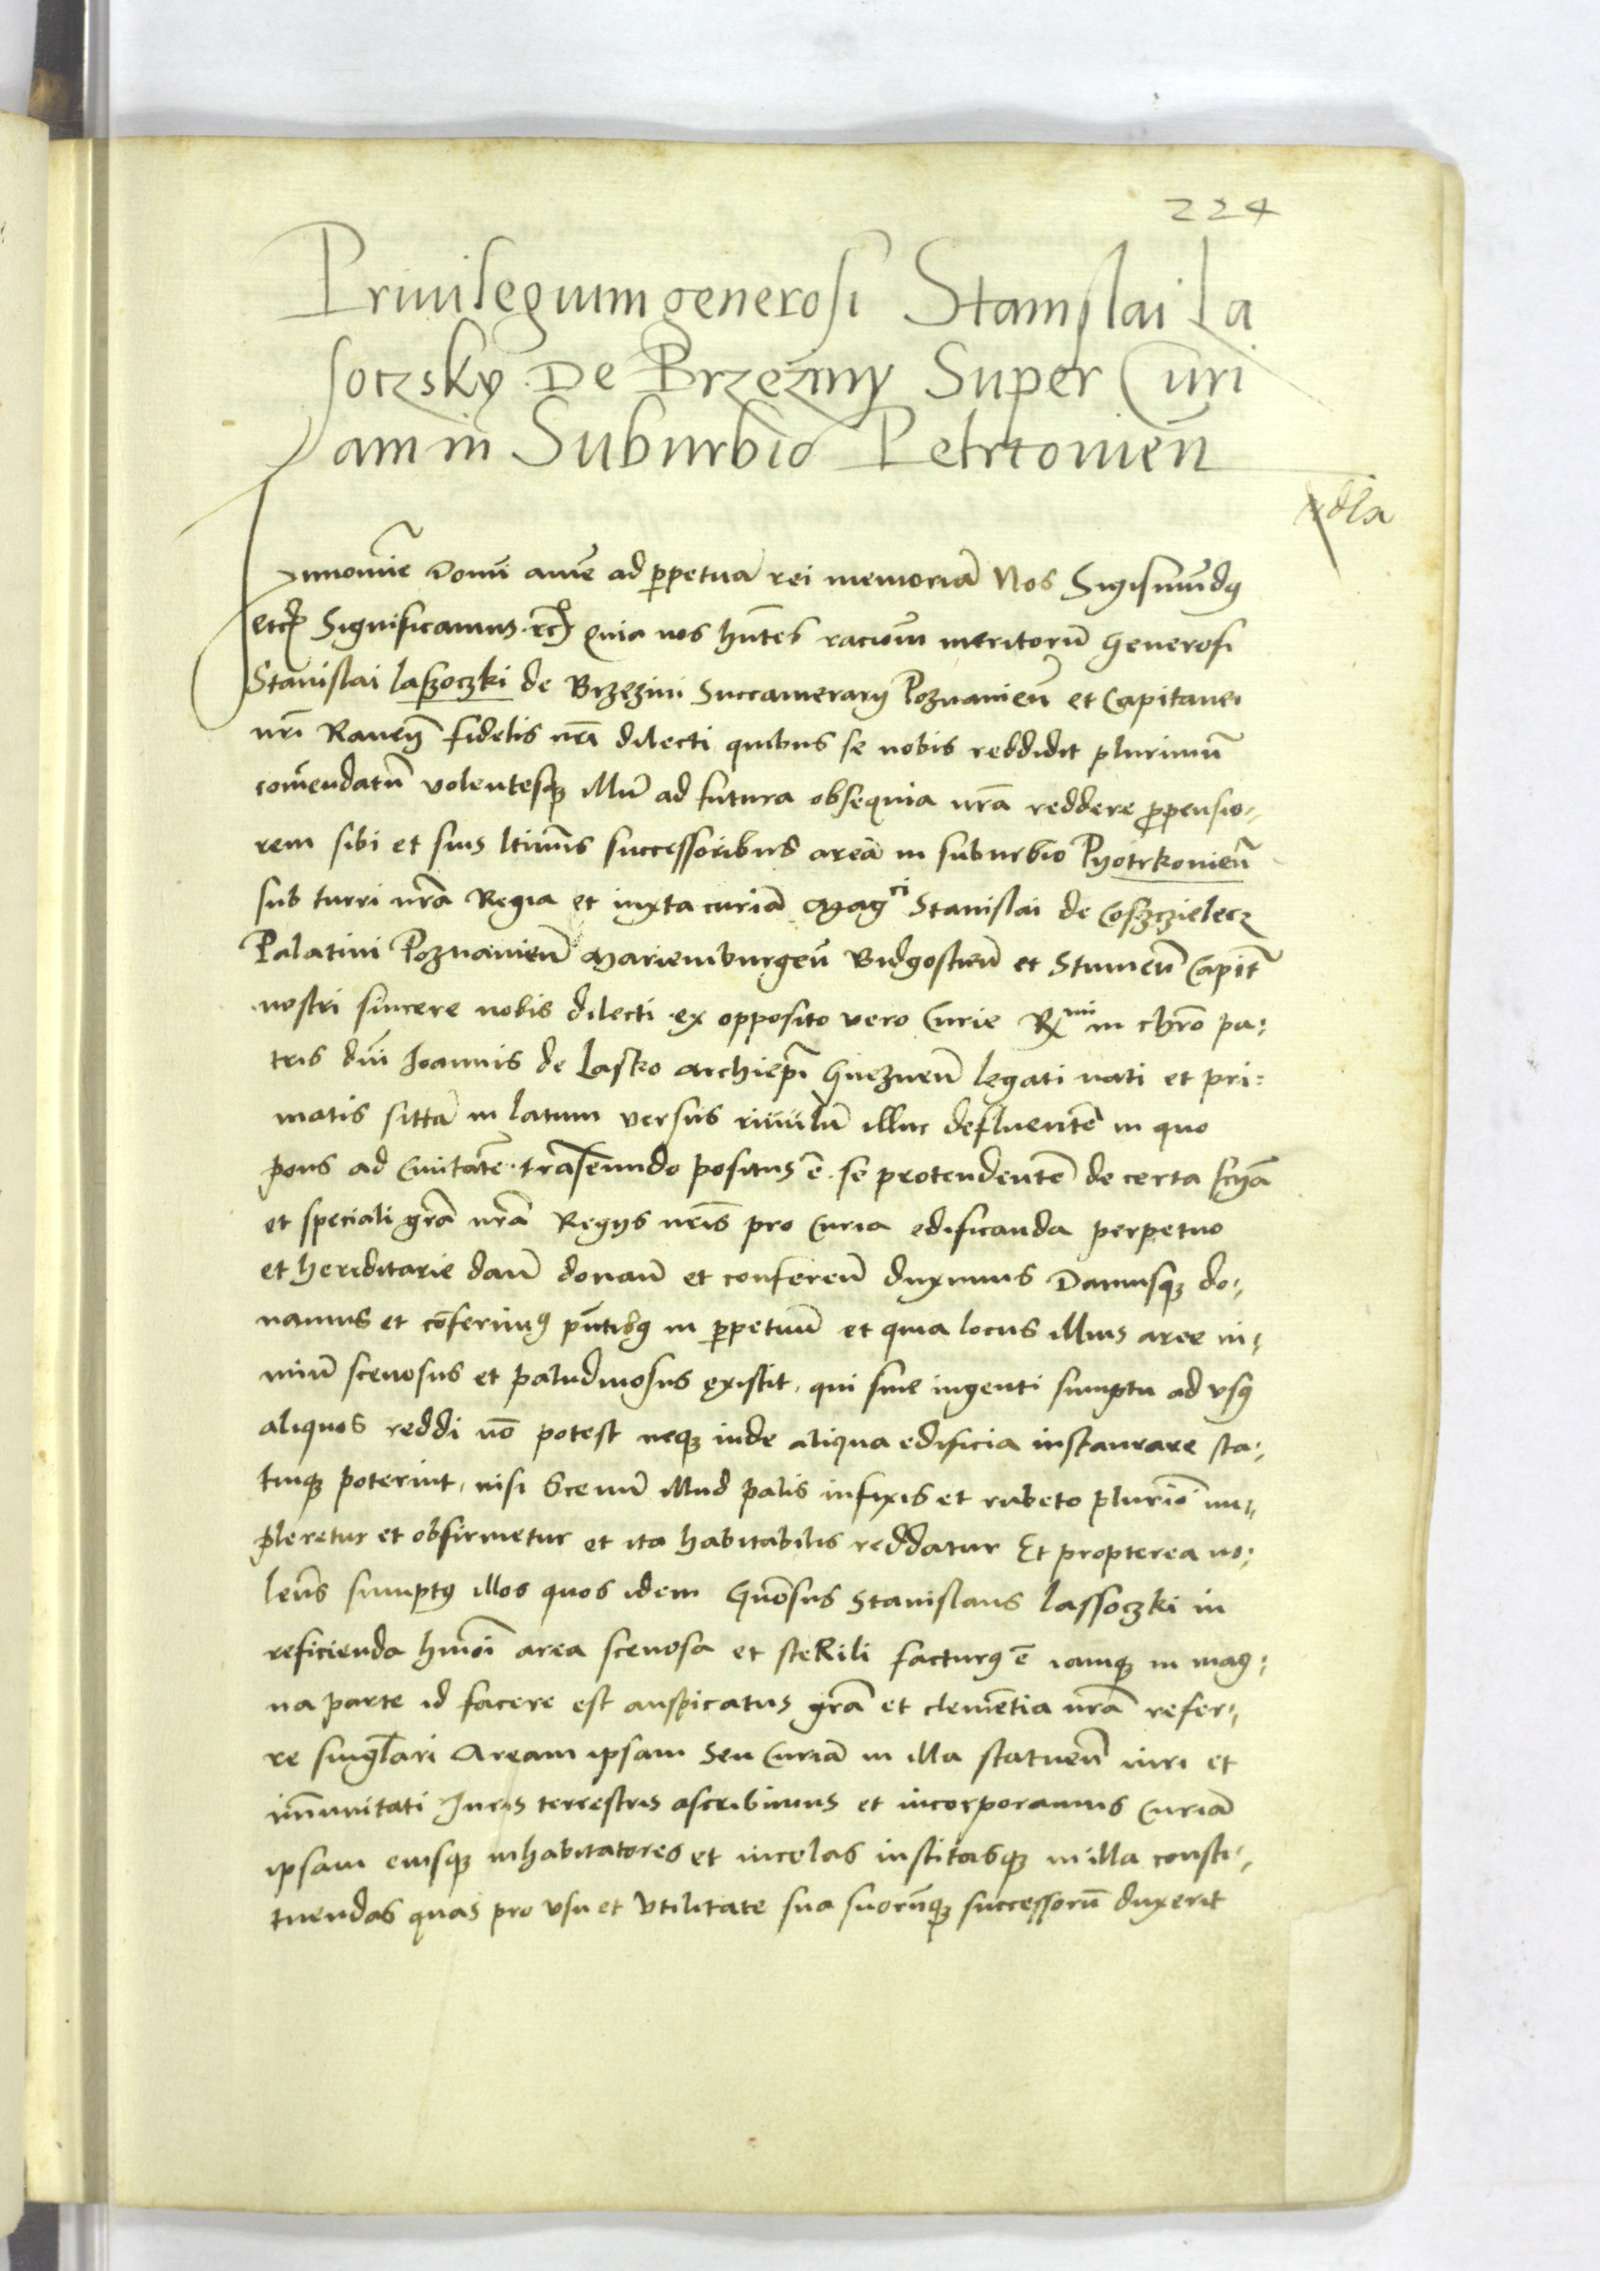 224
Priuilegium generosi Stanislai La
soczsky De Brzeziny Super Curi
am in Suburbio Petrcouien̄
In nomīe Domī amē ad ꝑpetuā rei memoriā Nos Sigismūdꝯ
etc̄ Significamus ꝛc̄ Quia nos hn̄tes racioū meritorū Generosi
Stanislai Laszoczki de Brzezini Succamerarÿ Poznanien̄ et Capitanei
nr̄i Rauen̄ fidelis nr̄i dilecti quibus se nobis reddidit plurimū
com̄endatū volentesqꝫ illū ad futura obsequia nr̄a reddere ꝓpensio-
rem sibi et suis ltimīs successoribus areā in suburbio Pyotrkouien̄
sub turri nr̄a Regia et iuxta curiā Magci Stanislai de Coszczielecz
Palatini Poznanien̄ Mariemburgen̄ Bidgostien̄ et Stumen̄ Capit̄
nostri sincere nobis dilecti ex opposito vero Curie Rmi in chr̄o pa-
tris dn̄i Joannis de Lasko archiep̄i Gneznen̄ legati nati et pri-
matis sittā in latum versus riuulū illuc defluentē in quo
pons ad Ciuitatē trāseundo positus ē se protendentē de certa scīa
et speciali gr̄a nr̄a Regÿs nr̄is pro Curia edificanda perpetuo
et hereditarie dan̄ donan̄ et conferen̄ duximus Damusqꝫ do-
namus et cōferimꝯ pn̄tibꝯ in ꝑpetuū et quia locus illius aree ni-
miū scenosus et paludinosus existit qui sine ingenti sumptu ad vsꝯ
aliquos reddi nō potest neqꝫ inde aliqua edificia instaurare sta-
tuiqꝫ poterint nisi Scenū illud palis infixis et rubeto plurīo im-
pleretur et obfirmetur et ita habitabilis reddatur Et propterea vo-
len̄s sumptꝯ illos quos idem Gn̄osus Stanislaus Lassoczki in
reficienda hmōi area scenosa et steRili facturꝯ ē iamqꝫ in mag-
na parte id facere est auspicatus gr̄a et clemētia nr̄a refer-
re singl̄ari Aream ipsam seu Curiā in illa statuen̄ iuri et
im̄unitati Juris terrestris ascribimus et incorporamus Curiā
ipsam eiusqꝫ inhabitatores et incolas institasqꝫ in illa consti-
tuendas quas pro vsu et vtilitate sua suorūqꝫ successorū duxerit